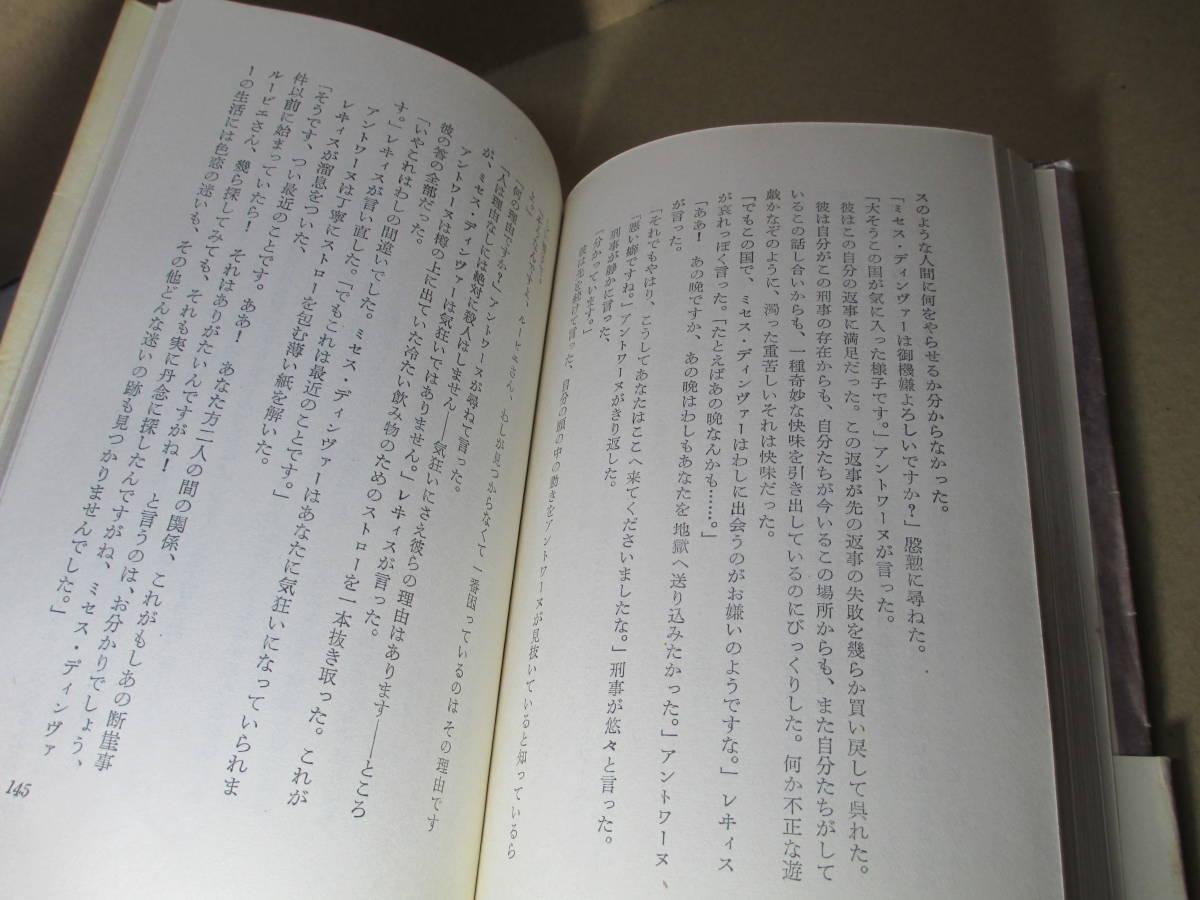 スのような人間に何をやらせるか分からなかった。
「ミセス・ディンヴァーは御機嫌よろしいですか？」慇懃に尋ねた。
「大そうこの国が気に入った様子です。」アントワーヌが言った。
彼はこの自分の返事に満足だった。この返事が先の返事の失敗を幾らか買い戻して呉れた。
彼は自分がこの刑事の存在からも、自分たちが今いるこの場所からも、また自分たちがして
いるこの話し合いからも、一種奇妙な快味を引き出しているのにびっくりした。何か不正な遊
戯かなぞのように、濁った重苦しいそれは快味だった。
「でもこの国で、ミセス・ディンヴァーはわしに出会うのがお嫌いのようですな。」レヰィス
が哀れっぽく言った。「たとえばあの晩なんかも……。」
「ああ！　あの晩ですか、あの晩はわしもあなたを地獄へ送り込みたかった。」アントワーヌ
が言った。
「それでもやはり、こうしてあなたはここへ来てくださいましたな。」刑事が悠々と言った。
「悪い癖ですね。」アントワーヌがきり返した。
刑事が静かに言った、
「分かっています。」
彼は先を続けて言った、自分の頭の中の動きをアントワーヌが見抜いていると知っているら
ルービエさん、わしが見つからなくて一番困っているのはその理由です
「何の理由ですか？」アントワーヌが尋ねて言った。
「人は理由なしには絶対に殺人はしません――気狂いにさえ彼らの理由はあります――ところ
が、ミセス・ディンヴァーは気狂いではありません。」レヰィスが言った。
アントワーヌは樽の上に出ていた冷たい飲み物のためのストローを一本抜き取った。これが
彼の答の全部だった。
「いやこれはわしの間違いでした。ミセス・ディンヴァーはあなたに気狂いになっていられま
す。」レヰィスが言い直した。「でもこれは最近のことです。」
アントワーヌは丁寧にストローを包む薄い紙を解いた。
レヰィスが溜息をついた、
「そうです、つい最近のことです。ああ！　あなた方二人の間の関係、これがもしあの断崖事
件以前に始まっていたら！　それはありがたいんですがね！　と言うのは、お分かりでしょう、
ルービエさん、幾ら探してみても、それも実に丹念に探したんですがね、ミセス・ディンヴァ
ーの生活には色恋の迷いも、その他どんな迷いの跡も見つかりませんでした。」
145